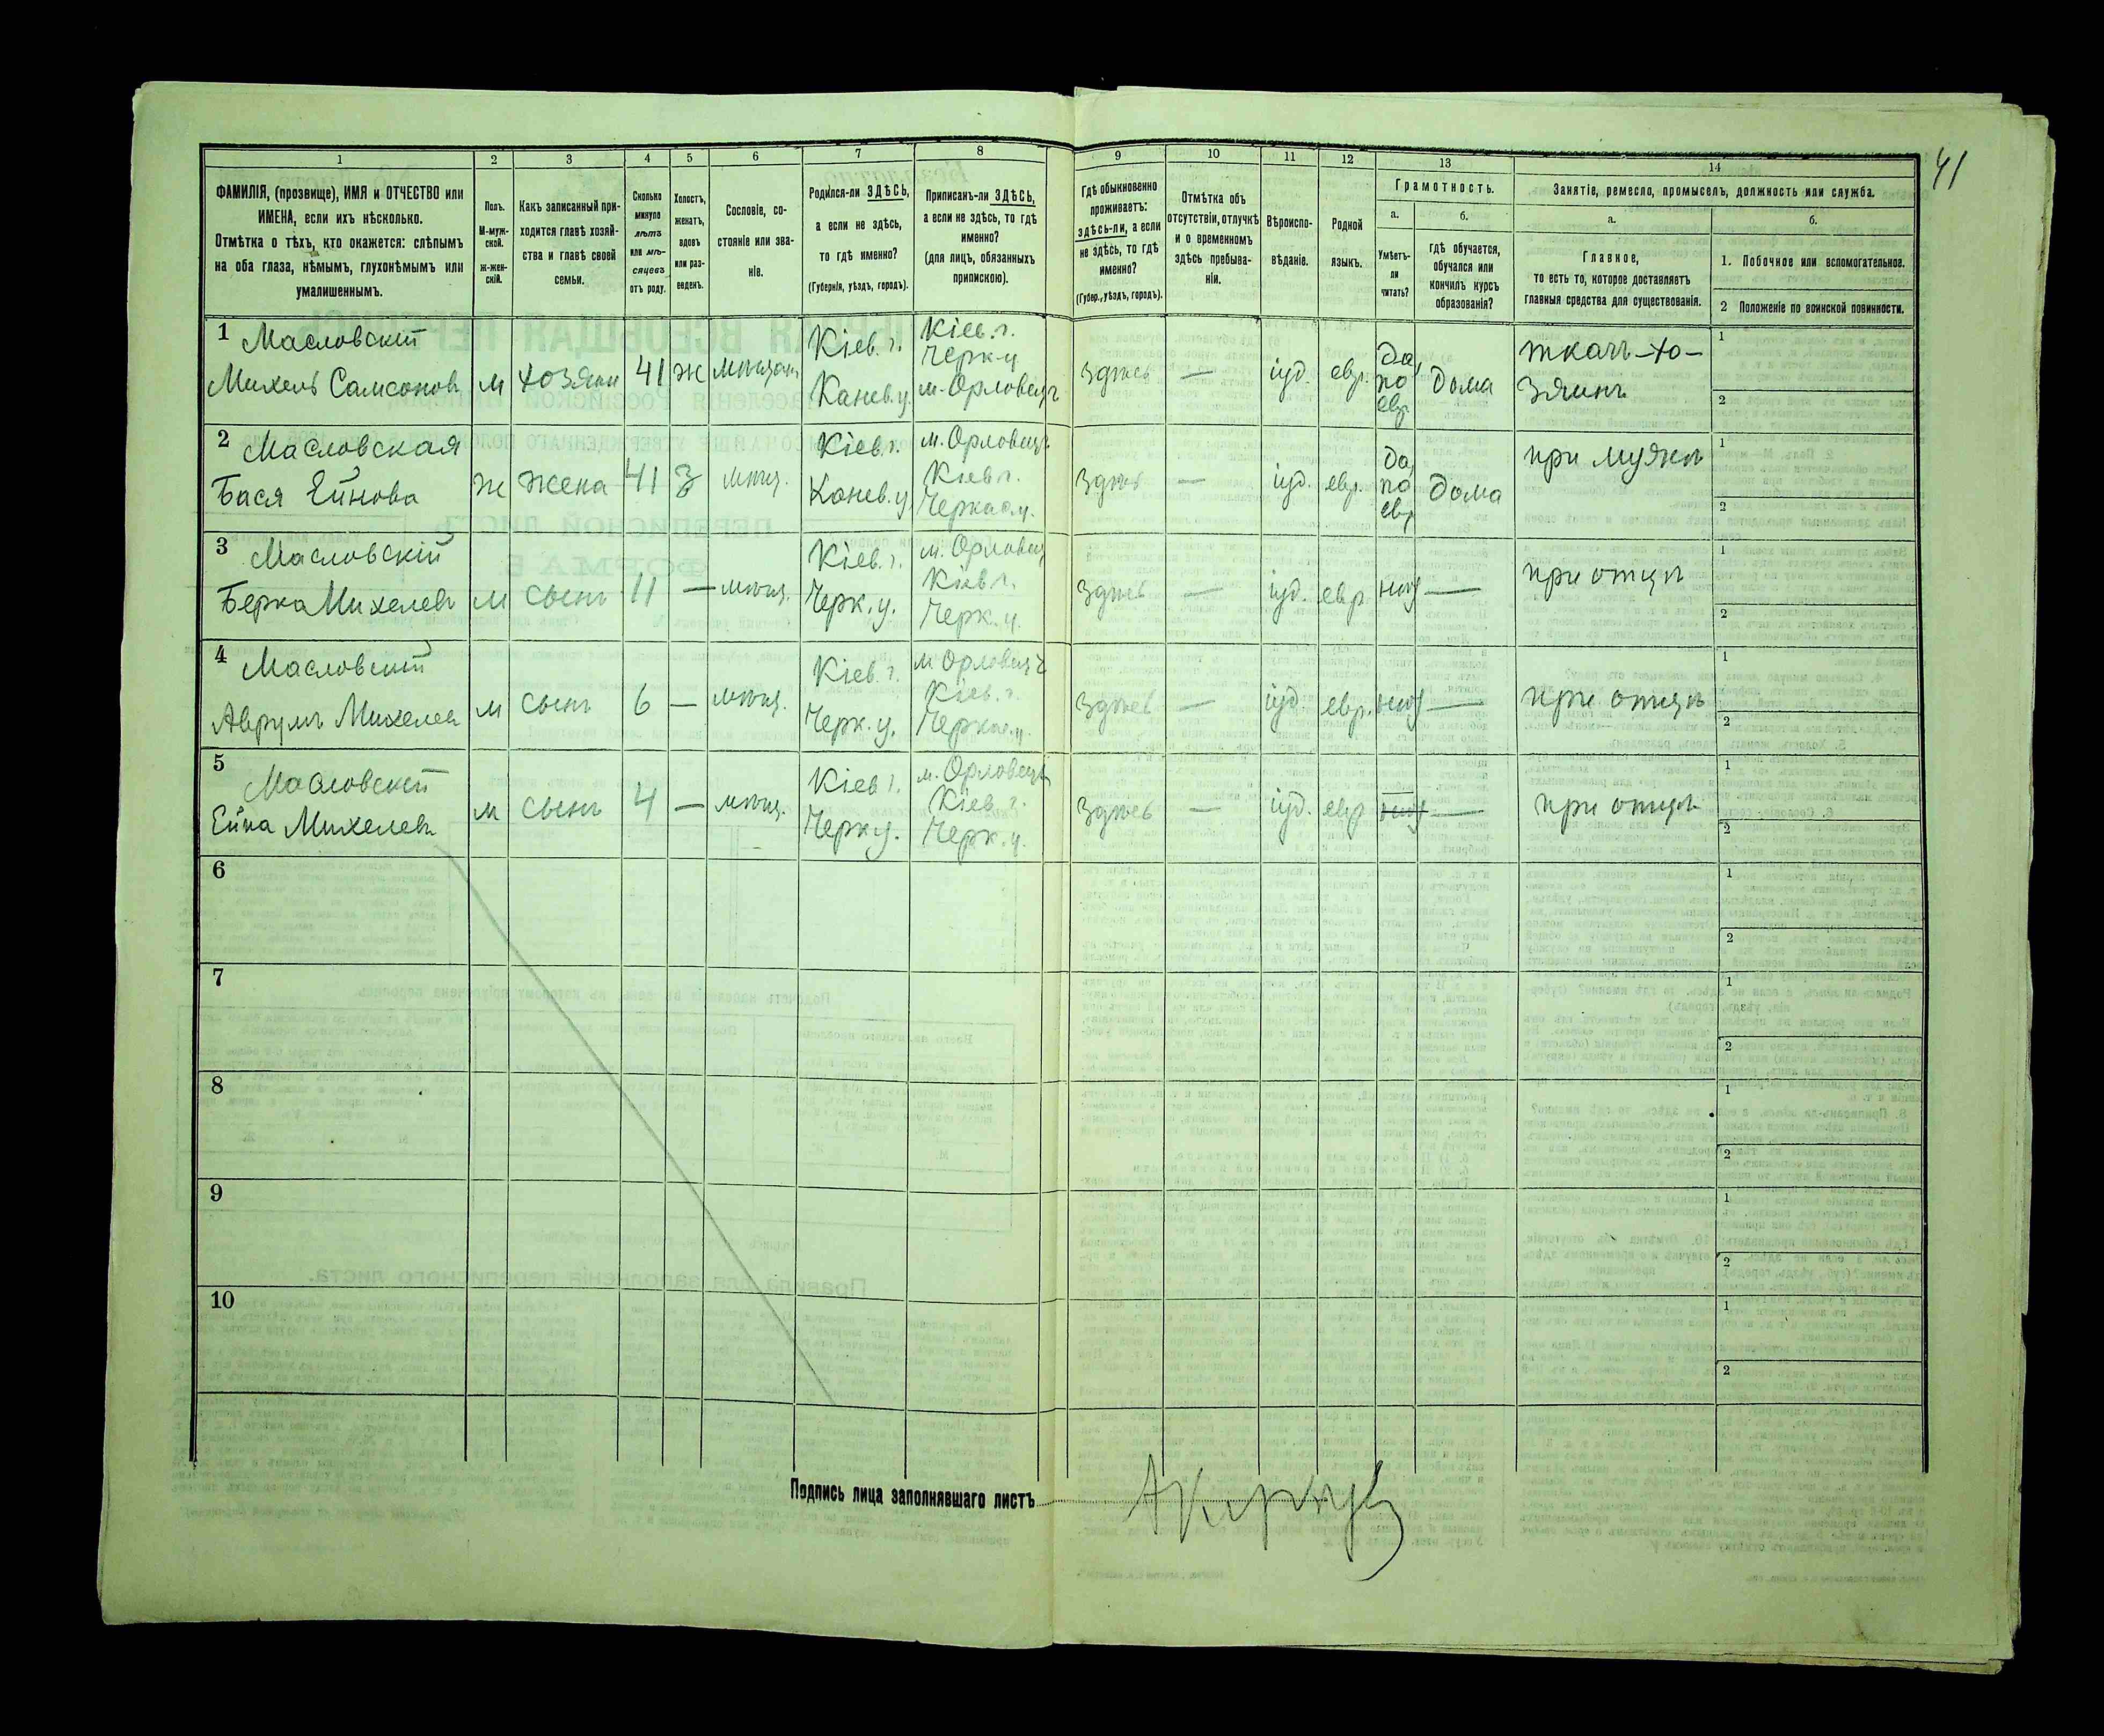 41
1
2
3
4
5
6
7
8
9
10
11
12
13
14
ФАМИЛІЯ, (прозвище), ИМЯ и ОТЧЕСТВО или
ИМЕНА, если ихъ нѣсколько.
Отмѣтка о тѣхъ, кто окажется: слѣпымъ
на оба глаза, нѣмымъ, глухонѣмымъ или
умалишеннымъ.
Полъ.
М-муж-
ской.
Ж-жен-
скій.
Какъ записанный при-
ходится главѣ хозяй-
ства и главѣ своей
семьи.
Сколько
минуло
лѣтъ
или мѣ-
сяцевъ
отъ роду.
Холостъ,
женатъ,
вдовъ
или раз-
веденъ.
Сословіе, со-
стояніе или зва-
ніе.
Родился-ли ЗДѢСЬ,
а если не здѣсь,
то гдѣ именно?
(Губернія, уѣздъ, городъ).
Приписанъ-ли ЗДѢСЬ,
а если не здѣсь, то гдѣ
именно?
(для лицъ, обязанныхъ
припискою).
Гдѣ обыкновенно
проживаетъ:
здѣсь-ли, а если
не здѣсь, то гдѣ
именно?
(Губер., уѣздъ, городъ).
Отмѣтка объ
отсутствіи, отлучкѣ
и о временномъ
здѣсь пребыва-
ніи.
Вѣроиспо-
вѣданіе.
Родной
языкъ.
Грамотность.
а.
Умѣетъ-
ли
читать?
б.
гдѣ обучается,
обучался или
кончилъ курсъ
образованія?
Занятіе, ремесло, промыселъ, должность или служба.
а.
Главное,
то есть то, которое доставляетъ
главныя средства для существованія.
б.
1. Побочное или вспомогательное.
2 Положеніе по воинской повинности.
1 Масловскій
Михель Самсоновъ
м
хозяин
41
ж
мѣщан
Кіев. г.
Канев. у.
Кіев. г.
Черк. у
м. Орловецъ
здѣсь
—
іуд.
евр.
да,
по
евр.
дома
ткачъ-хо-
зяинъ
1
2
2 Масловская
Бася Ейнова
ж
жена
41
з
мѣщ.
Кіев. г.
Канев. у
м. Орловецъ
Кіев г.
Черкас. у.
здѣсь
—
іуд.
евр.
да,
по
евр
дома
при мужѣ
1
2
3 Масловскій
Берко Михелевъ
м
сынъ
11
—
мѣщ.
Кіев. г.
Черк. у.
м. Орловец
Кіев г.
Черк. у.
здѣсь
—
іуд.
евр
нѣт
—
при отцѣ
1
2
4 Масловскій
Аврумъ Михелев
м
сынъ
6
—
мѣщ.
Кіев. г.
Черк. у.
м Орловецъ
Кіев. г.
Черкас. у.
здѣсь
—
іуд.
евр.
нѣт
—
при отцѣ
1
2
5 Масловскій
Ейна Михелевъ
м
сынъ
4
—
мѣщ.
Кіев г.
Черк у.
м. Орловецъ
Кіев. г.
Черк. у.
здѣсь
—
іуд.
евр
нѣт
—
при отцѣ
1
2
6
1
2
7
1
2
8
1
2
9
1
2
10
1
2
Подпись лица заполнявшаго листъ